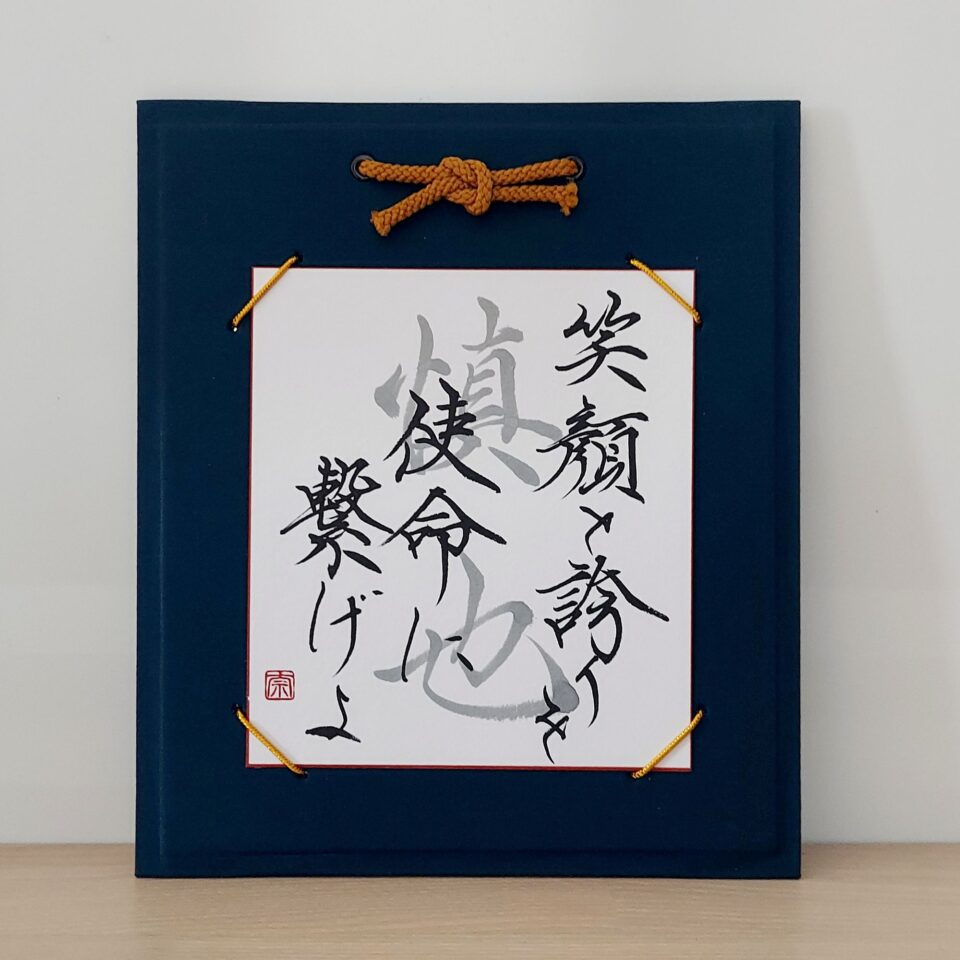 笑顔と誇りを
使命に
繋げよ
慎也
宗